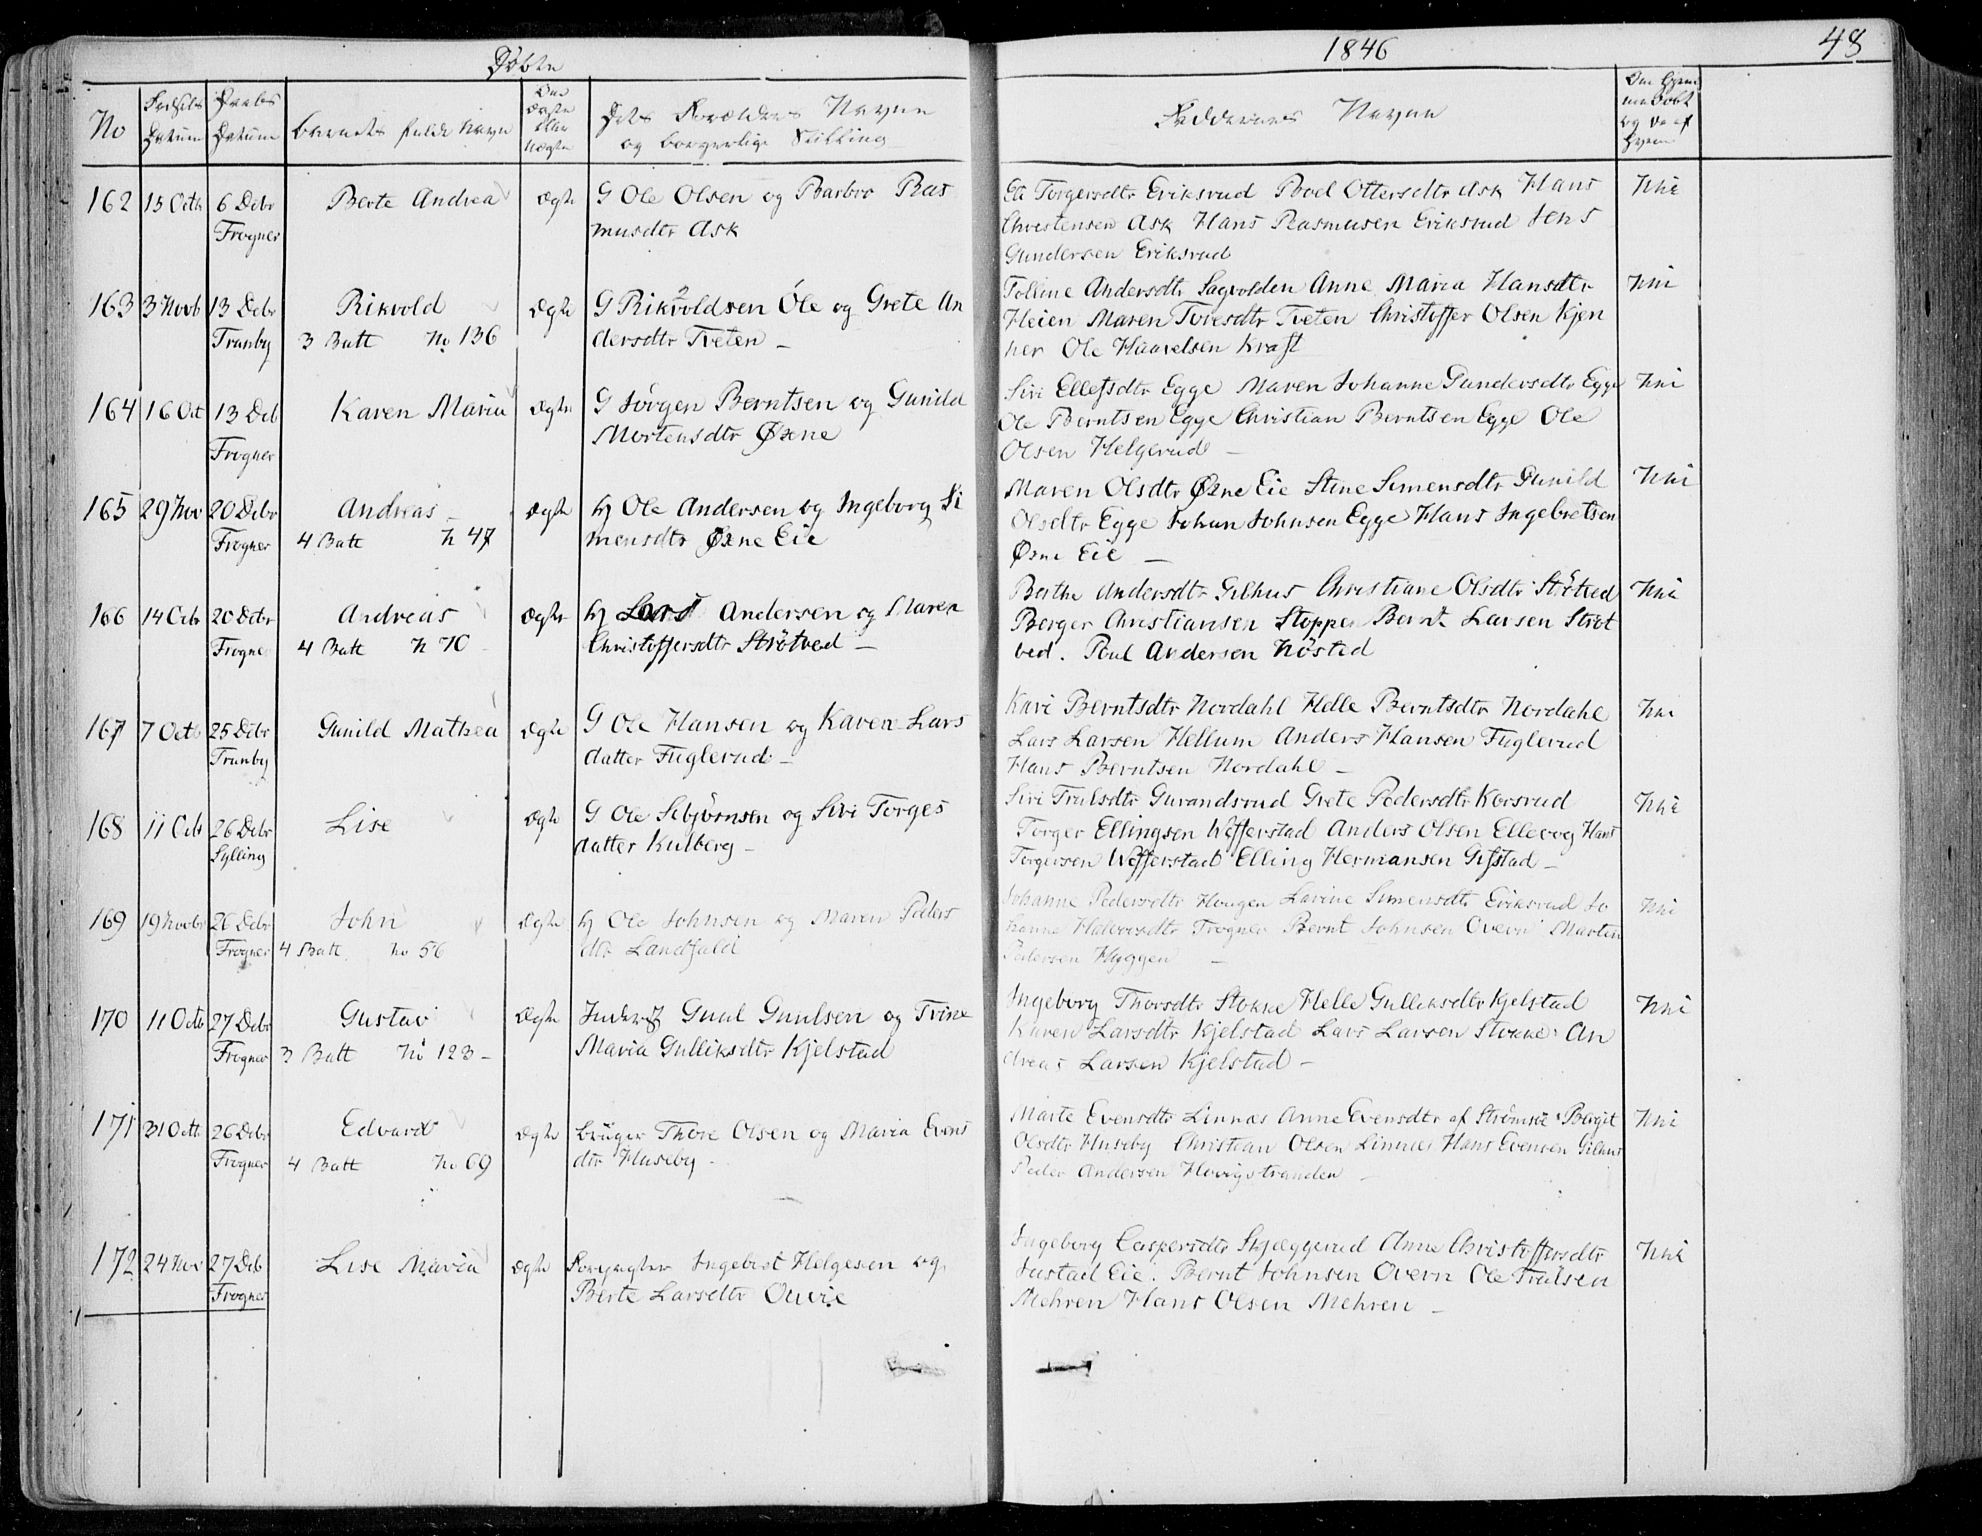 Døbte
1846
48
No
Fødsels Datum
Daabs Datum
Barnets fulde Navn
Om Ægte eller Uægte
Dets Forældres Navne og borgerlige Stilling
Faddernes Navne
Om hjemmedøbt og da af hvem
162 15 Octb 6 Debr Berte Andrea ægte G Ole Olsen og Barbro Ras
Frogner musdtr Ask
Torgersdtr Eriksrud Boel Ottersdtr Ask Hans Nei
Christensen Ask Hans Rasmusen Eriksrud Jens
Gundersen Eriksrud
163 3 Novb 13 Debr Rikvold ægte G Rikvoldsen Ole og Grete An
Tranby 3 Batt No 136 dersdtr Tveten
Andersdtr Sagvolden Anne Maria Hansdtr Nei
Heien Maren Toresdtr Tveten Christoffer Olsen Kjen
ner Ole Haavelsen Kraft
164 16 Oct 13 Deb Karen Maria ægte G Jörgen Berntsen og Gunild
Frogner Mortensdtr Øxne
Siri Ellefsdtr Egge Maren Johanne Gundersdtr Egge Nei
Ole Berntsen Egge Christian Berntsen Egge Ole
Olsen Helgerud
165 29 Nov 20 Debr Andreas ægte hj Ole Andersen og Ingeborg Si
Frogner 4 Batt N 47 mensdtr Øxne Eie
Maren Olsdtr Øxne Eie Stine Simensdtr Gunild Nei
Olsdtr Egge Johan Johnsen Egge Hans Ingebretsen
Øxne Eie
166 14 Octbr 20 Debr Andreas ægte hj Lars Andersen og Maren
Frogne 4 Batt N 70 Christoffersdtr Strötved
Berthe Andersdtr Gilhus Christiane Olsdtr Strötved Nei
Berger Christiansen Stoppen Bernt Larsen Ströt
ved. Poul Andersen Nösted
167 7 Octb 25 Debr Gunild Mathea ægte G Ole Hansen og Karen Lars
Tranby datter Fuglerud
Kari Berntsdtr Nordahl Helle Berntsdtr Nordahl Nei
Lars Larsen Hellum Anders Hansen Fuglerud
Hans Berntsen Nordahl
168 11 Octb 26 Debr Lise ægte G Ole Sebjörnsen og Siri Torges
Sylling datter Kulberg
Siri Trulsdtr Gurandsrud Grete Pedersdtr Korsrud Nei
Torger Ellingsen Wefferstad Anders Olsen Ellevog Hans
Torgersen Wefferstad Elling Hermansen Gifstad
169 19 Novbr 26 Debr John ægte hj Ole Johnsen og Maren Peders
Frogner 4 Batt No 56 dtr Landfald
Johanne Pedersdtr Hougen Lavine Simensdtr Eriksrud Jo Nei
hanne Halvorsdtr Frogner Bernt Johnsen Overn Morten
Pedersen Hyggen
170 11 Octb 27 Debr Gustav ægte Inderst Guul Guulsen og Trine
Frogner 3 Batt No 123 Maria Gulliksdtr Kjelstad
Ingeborg Thorsdtr Stokke Helle Gulliksdtr Kjelstad Nei
Karen Larsdtr Kjelstad Lars Larsen Stokke An
dreas Larsen Kjelstad
171 31 Octb 26 Debr Edvard ægte bruger Thore Olsen og Maria Evens
Frogner 4 Batt No 69 dtr Huseby
Marte Evensdtr Linnes Anne Evensdtr af Strömsöe Bergit Nei
Olsdtr Huseby Christian Olsen Linnes Hans Evensen Gilhus
Peder Andersen Hovigstranden
172 24 Nov 27 Deb Lise Maria ægte Forpagter Ingebret Helgesen og
Frogner Berte Larsdtr
Ingeborg Caspersdtr Skjæggerud Anne Christoffersdtr Nei
Justad Eie. Bernt Johnsen Overn Ole Trulsen
Mehren Hans Olsen Mehren